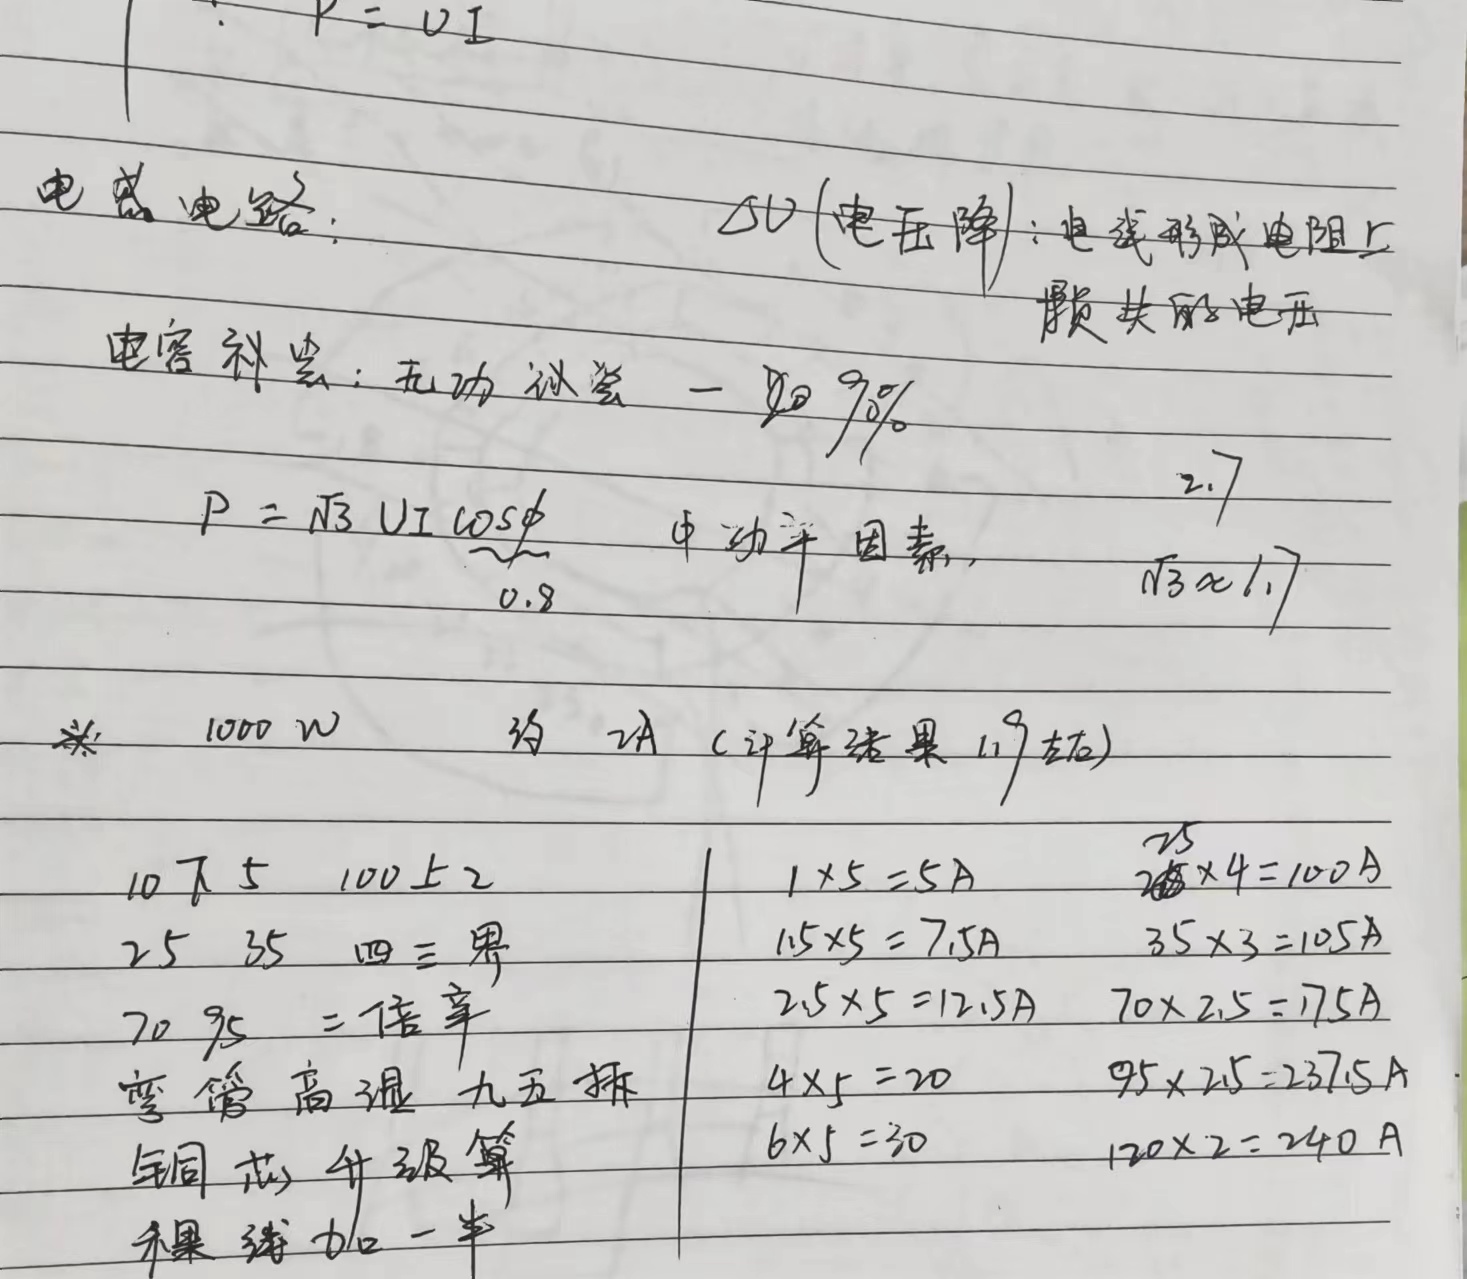 P = UI
电感电路:
ΔU (电压降): 电线形成电阻上
损失的电压
电容补尝: 无功补尝 — 90%
2.7
P = √3 UI cosφ 功率因素
0.8
√3 ≈ 1.7
※ 1000 W 约 2A (计算结果 1.9 左右)
10下5 100上2
25 35 四三界
70 95 二倍率
弯管高温九五折
铜芯升级算
裸线加一半
1×5=5A
1.5×5=7.5A
2.5×5=12.5A
4×5=20
6×5=30
25×4=100A
35×3=105A
70×2.5=175A
95×2.5=237.5A
120×2=240A